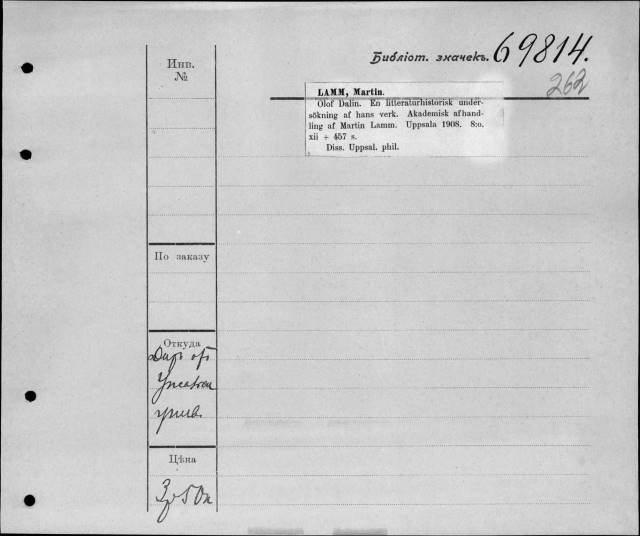 Инв.
№
Библіот. значекъ. 69814.
262
LAMM, Martin.
Olof Dalin. En litteraturhistorisk under-
sökning af hans verk. Akademisk afhand-
ling af Martin Lamm. Uppsala 1908. 8:o.
xii + 457 s.
Diss. Uppsal. phil.
По заказу
Откуда
Даръ отъ
унив.
Цѣна
3р 50к